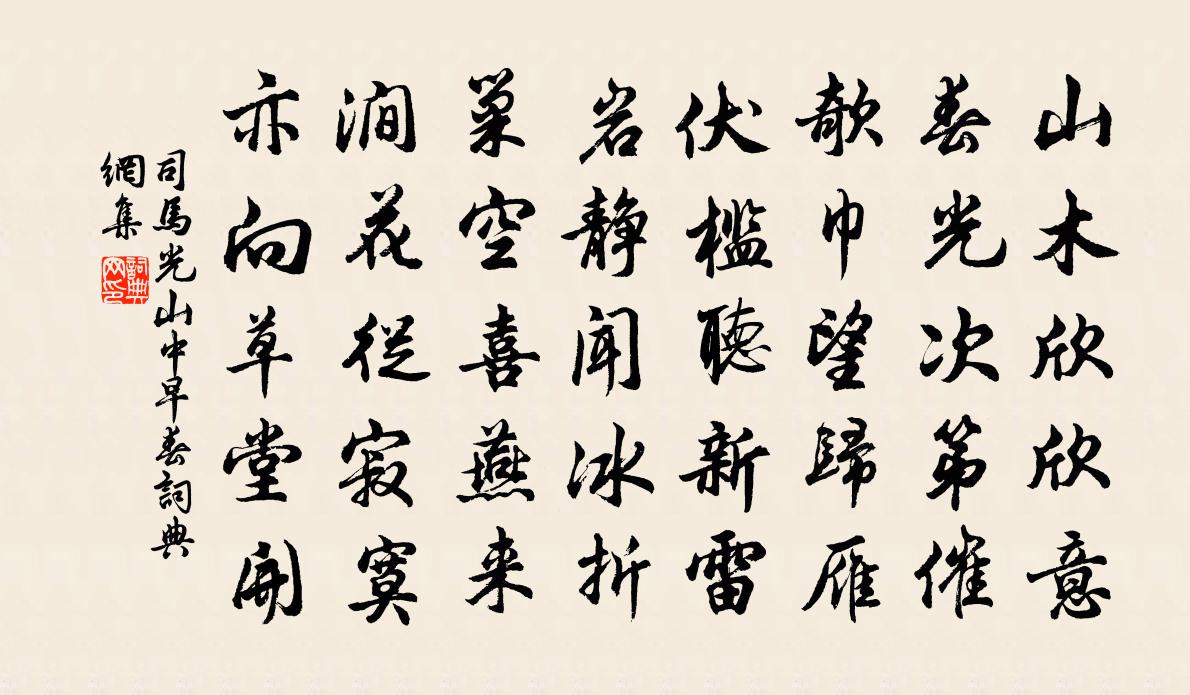 山木欣欣意
春光次第催
欹巾望歸雁
伏檻聽新雷
岩靜闻冰折
巢空喜燕来
澗花從寂寞
亦向草堂開
司馬光山中早春詞典
網集
詞典
网印